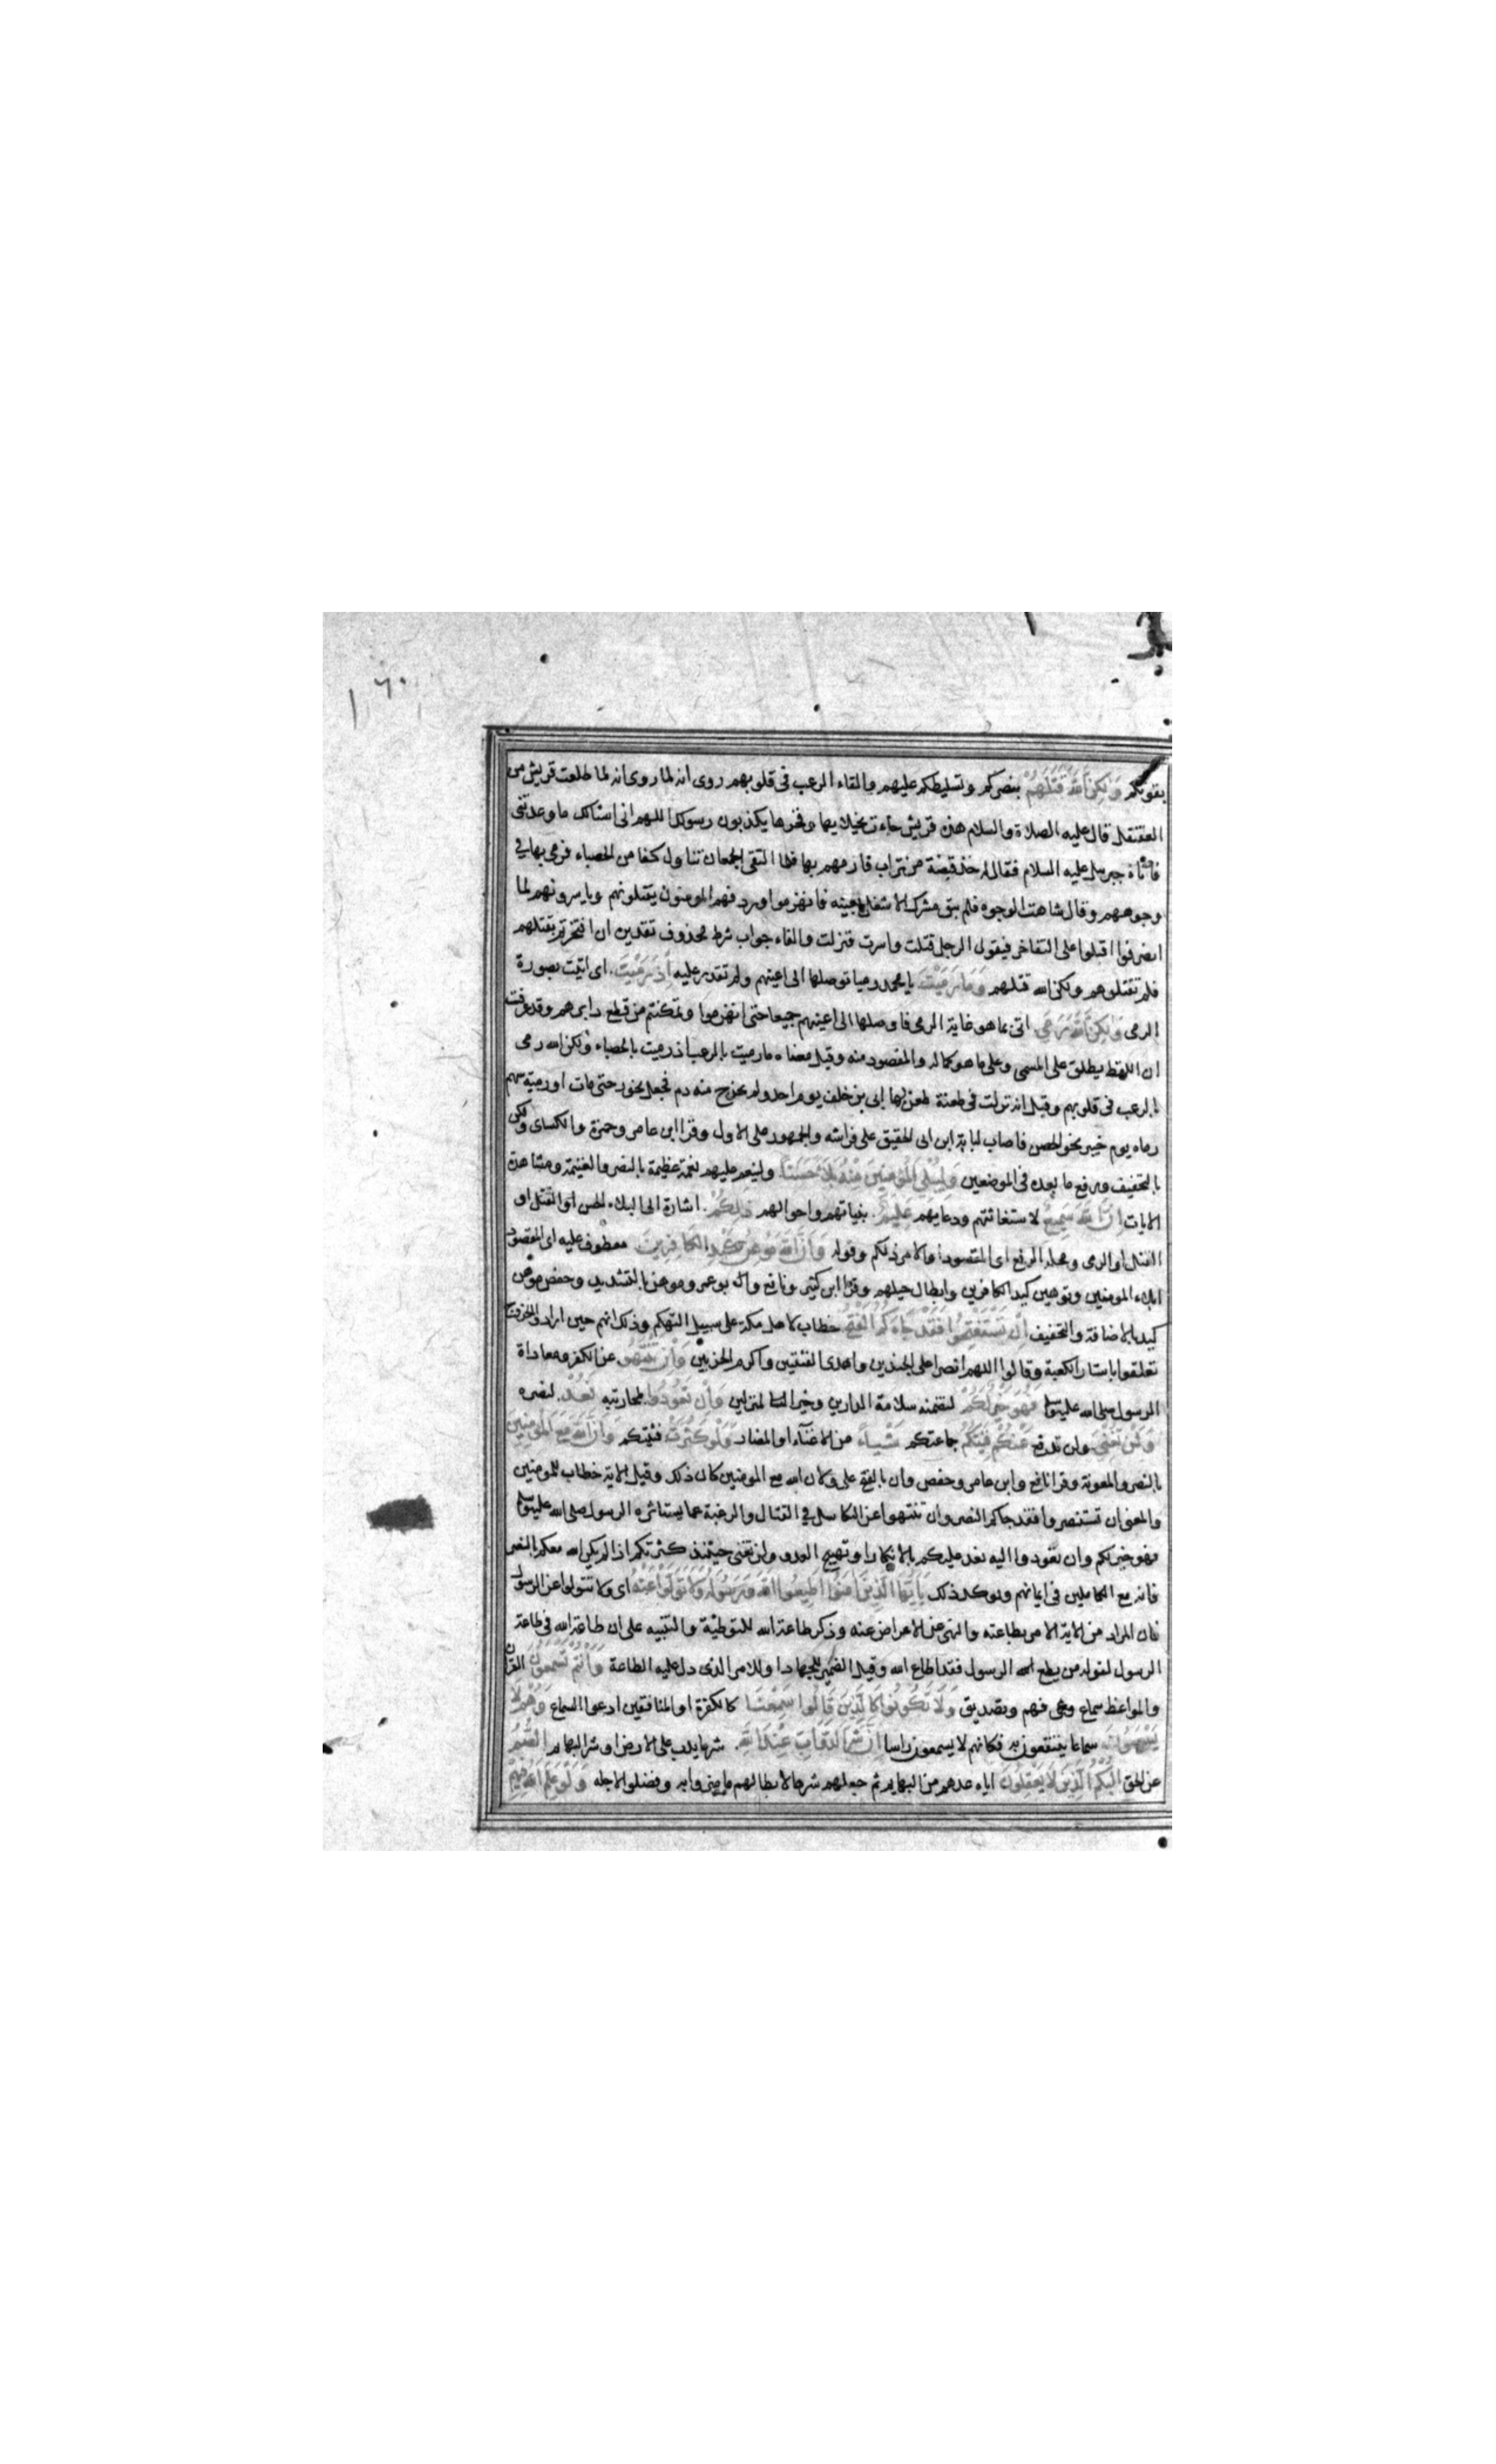 ١٦٠
بقوتكم وَلٰكِنَّ اللّٰهَ قَتَلَهُمْ بنصركم وتسليطكم عليهم والقاء الرعب فى قلوبهم روى انه لما روى انه لما طلعت قريش من
العقنقل قال عليه الصلاة والسلام هذه قريش جاءت بخيلايها وفخرها يكذبون رسولك اللهم انى اسئالك ما وعدتنى
فاتاه جبريل عليه السلام فقال له خذ قبضة من تراب فارمهم بها فلما التقى الجمعان تناول كفا من الحصباء فرمى بها في
وجوههم وقال شاهت الوجوه فلم يبق مشرك الا شغل بعينيه فانهزموا وردفهم المومنون يقتلونهم وياسرونهم لما
انصرفوا اقبلوا على التفاخر فيقول الرجل قتلت واسرت فنزلت والفاء جواب شرط محذوف تقديره ان افتخرتم بقتلهم
فلم تقتلوهم ولكن الله قتلهم وَمَا رَمَيْتَ يا محمد رميا توصلها الى اعينهم ولم تقدر عليه اِذْ رَمَيْتَ. اى اتيت بصورة
الرمى وَلٰكِنَّ اللّٰهَ رَمَى. اتى بما هو غاية الرمى فاوصلها الى اعينهم جميعا حتى انهزموا وتمكنتم من قطع دابرهم وقد عرفت
ان اللفظ يطلق على المسمى وعلى ما هو كماله والمقصود منه وقيل معناه ما رميت بالرعب اذ رميت بالحصباء ولكن الله رمى
بالرعب فى قلوبهم وقيل انه نزلت فى طعنة طعن بها ابى بن خلف يوم احد ولم يخرج منه دم فجعل يخور حتى مات او رمية سهم
رماه يوم خيبر نحو الحصن فاصاب لبابة ابن ابى الحقيق على فراشه والجمهور على الاول وقرا ابن عامر وحمزة والكساى ولكن
بالتخفيف ورفع ما بعده فى الموضعين وَلِيُبْلِىَ الْمُؤْمِنِينَ مِنْهُ بَلَاءً حَسَنًا ولينعم عليهم نعمة عظيمة بالنصر والغنيمة ومشاهدة
الايات اِنَّ اللّٰهَ سَمِيعٌ لاستغاثتهم ودعايهم عَلِيمٌ. بنياتهم واحوالهم ذٰلِكُمْ. اشارة الى البلاء الحسن او القتل او
القتل او الرمى ومحله الرفع اى المقصود او الامر ذلكم وقوله وَاَنَّ اللّٰهَ مُوهِنُ كَيْدِ الْكَافِرِينَ معطوف عليه اى المقصود
ابلاء المومنين وتوهين كيد الكافرين وابطال حيلهم وقرا ابن كثير ونافع وابو عمرو موهن بالتشديد وحفص موهن
كيد بالاضافة والتخفيف اِنْ تَسْتَفْتِحُوا فَقَدْ جَاءَكُمُ الْفَتْحُ خطاب لاهل مكة على سبيل التهكم وذلك انهم حين ارادوا الخروج
تعلقوا باستار الكعبة وقالوا اللهم انصر اعلى الجندين واهدى الفئتين واكرم الحزبين وَاِنْ تَنْتَهُوا عن الكفر ومعاداة
الرسول صلى الله عليه وسلم فَهُوَ خَيْرٌ لَكُمْ لتضمنه سلامة الدارين وخير المنزلين وَاِنْ تَعُودُوا لمحاربته نَعُدْ. لنصره
وَلَنْ تُغْنِىَ ولن تدفع عَنْكُمْ فِئَتُكُمْ جماعتكم شَيْئاً من الاغنآء او المضار وَلَوْ كَثُرَتْ فئتكم وَاَنَّ اللّٰهَ مَعَ الْمُؤْمِنِينَ
بالنصر والمعونة وقرا نافع وابن عامر وحفص وان بالفتح على ولان الله مع المومنين كان ذلك وقيل الاية خطاب للمومنين
والمعنى ان تستنصروا فقد جاكم النصر وان تنتهوا عن التكاسل في القتال والرغبة عما يستاثره الرسول صلى الله عليه وسلم
فهو خير لكم وان تعودوا اليه نعد عليكم بالانكار او تهييج العدو ولن تغنى حينئذ كثرتكم اذا لم يكن الله معكم بالنصر
فانه مع الكاملين فى ايمانهم ويوكد ذلك يَا اَيُّهَا الَّذِينَ اٰمَنُوا اَطِيعُوا اللّٰهَ وَرَسُولَهُ وَلَا تَوَلَّوْا عَنْهُ اى ولا تتولوا عن الرسول
فان المراد من الاية الامر بطاعته والنهى عن الاعراض عنه وذكر طاعة الله للتوطئة والتنبيه على ان طاعة الله فى طاعة
الرسول لقوله من يطع الرسول فقد اطاع الله وقيل الضمير للجهاد او للامر الذى دل عليه الطاعة وَاَنْتُمْ تَسْمَعُونَ القران
والمواعظ سماع وعى فهم وتصديق وَلَا تَكُونُوا كَالَّذِينَ قَالُوا سَمِعْنَا كالكفرة او المنافقين ادعوا السماع وَهُمْ لَا
يَسْمَعُونَ سماعا ينتفعون به فكانهم لا يسمعون راسا اِنَّ شَرَّ الدَّوَابِّ عِنْدَ اللّٰهِ. شر ما يدب على الارض او شر البهايم الصُّمُّ
عن الحق الْبُكْمُ الَّذِينَ لَا يَعْقِلُونَ اياه عدهم من البهايم ثم جعلهم شرها لابطالهم ما ميزوا به وفضلوا لاجله وَلَوْ عَلِمَ اللّٰهُ فِيهِمْ